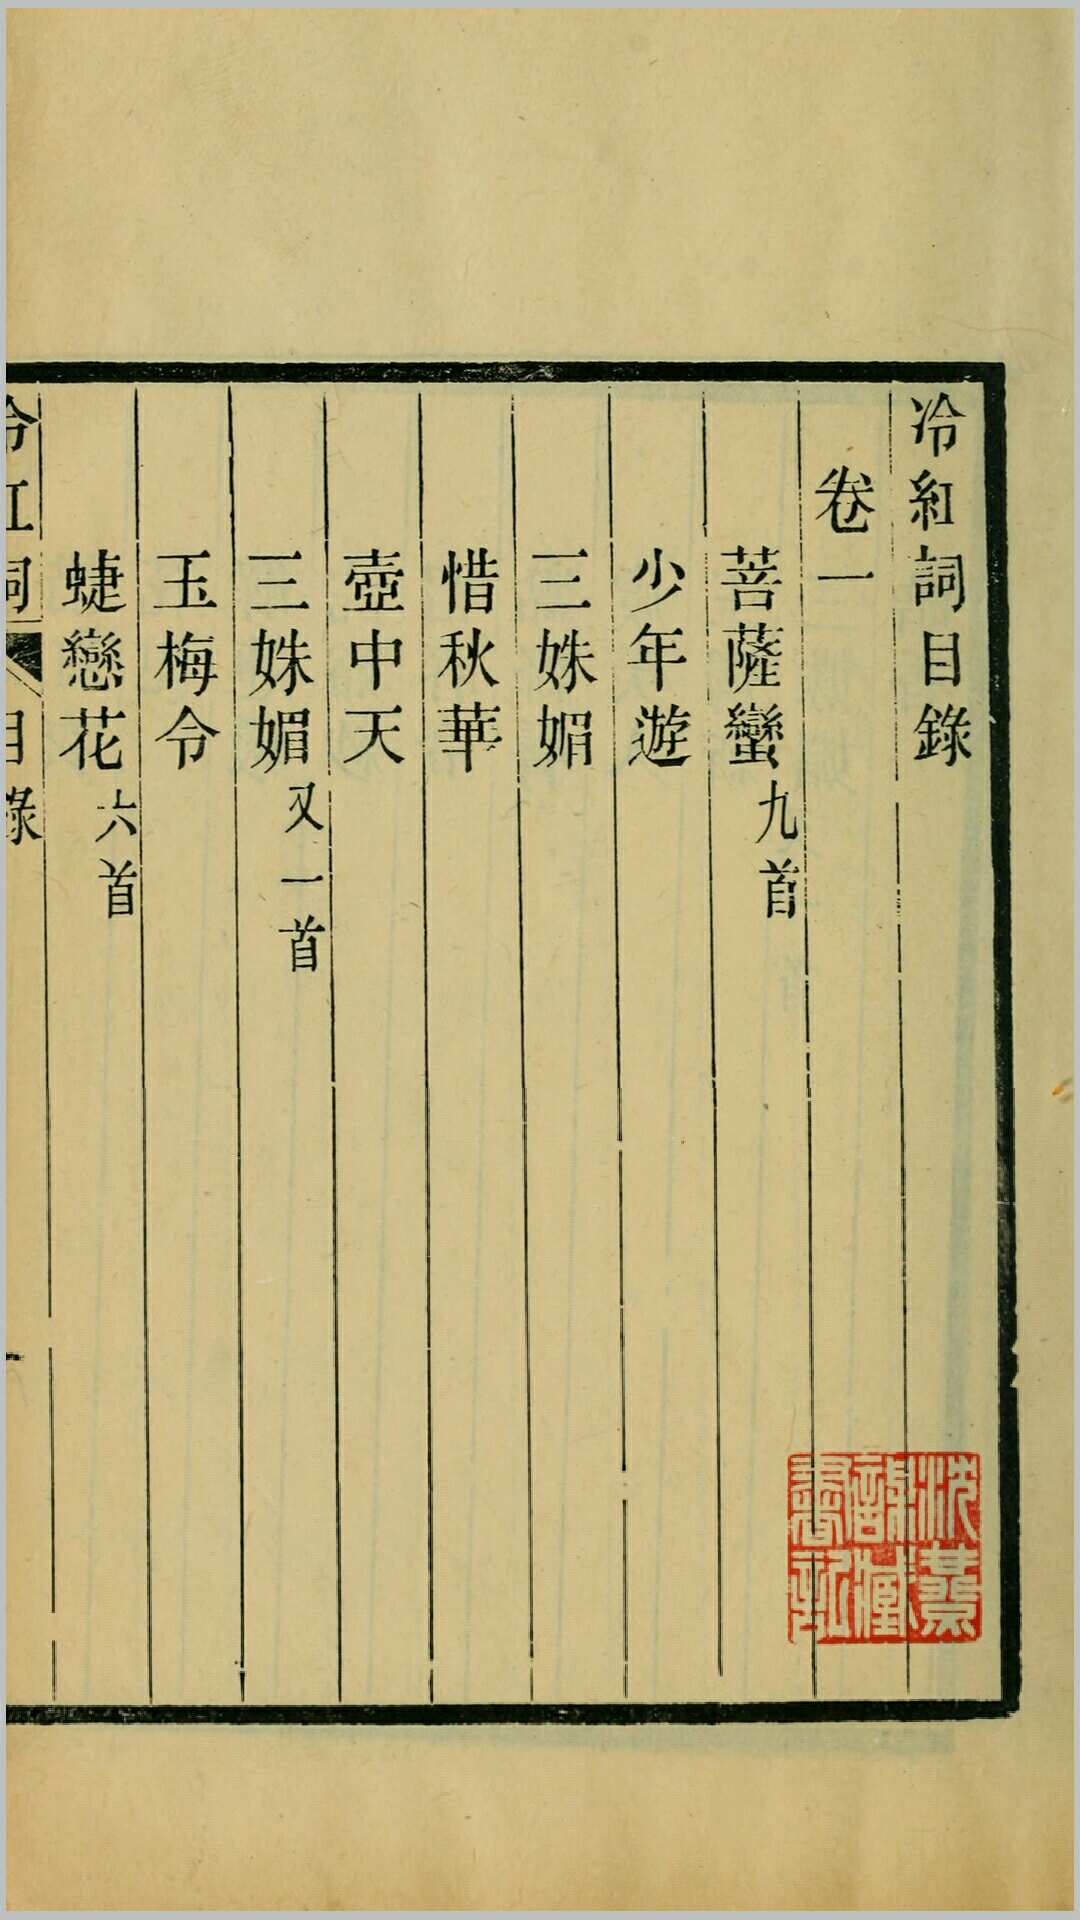 冷紅詞目錄
卷一
菩薩蠻九首
少年遊
三姝媚
惜秋華
壺中天
三姝媚又一首
玉梅令
蜨戀花六首
冷紅詞 目錄 一